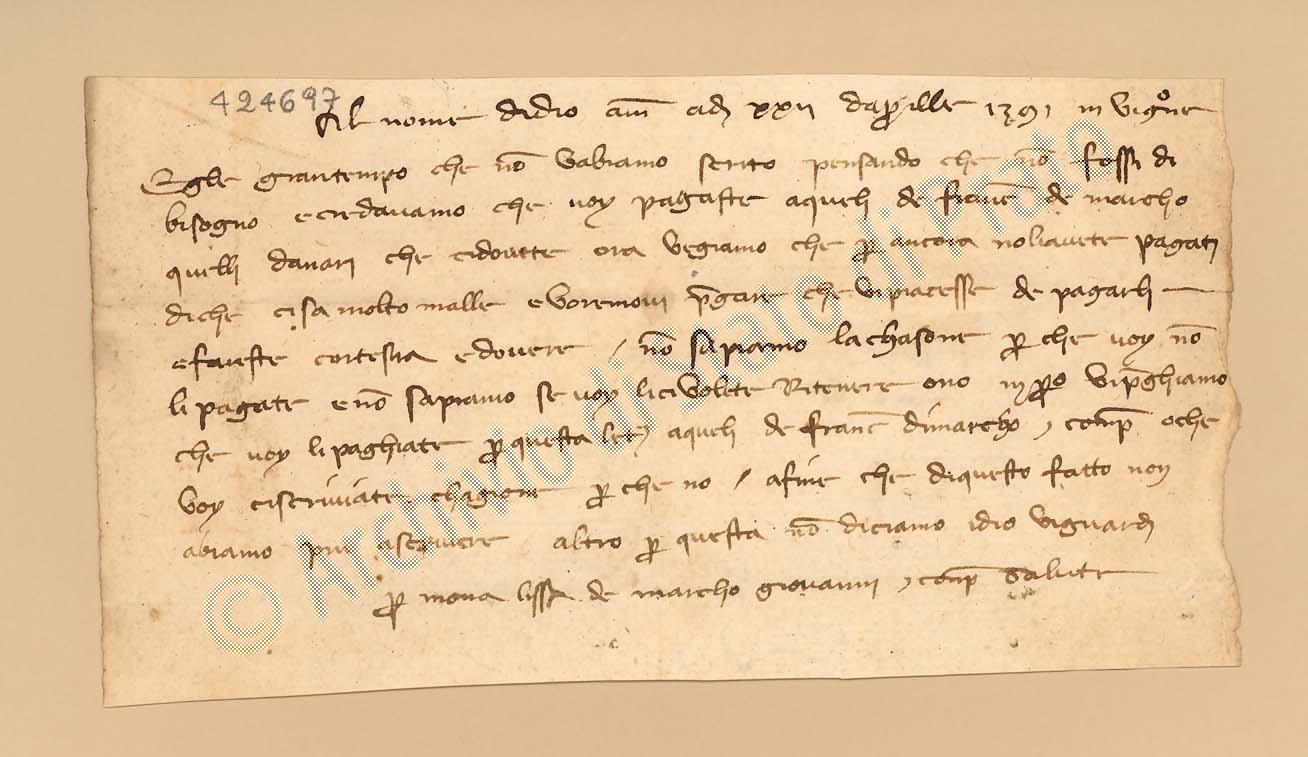 424697
Al nome didio am ad xxii daprille 1391 in vignone
Egle grantempo che no vabiamo scrito pensando che no fossi di
bisogno e credavamo che voy pagaste aqueli de franc de marcho
quelli danari che cidovette ora vegiamo che per ancora noliavete pagati
diche cisa molto malle e voremovi pregare che vi piacesse de pagarli
e faveste cortesia e dovere / no sapiamo la chasone per che voy no
li pagate e no sapiamo se voy li ci volete Ritenere ono vi preghiamo
che voy li paghiate per questa let aqueli de franc dimarcho, comp oche
voy ciscriviate chagione per che no / afine che diquesto fatto noy
abiamo piu ascrivere altro per questa no diciamo idio viguard
per mona lissa de marcho giovanni, comp salute
© Archivio di Stato di Prato